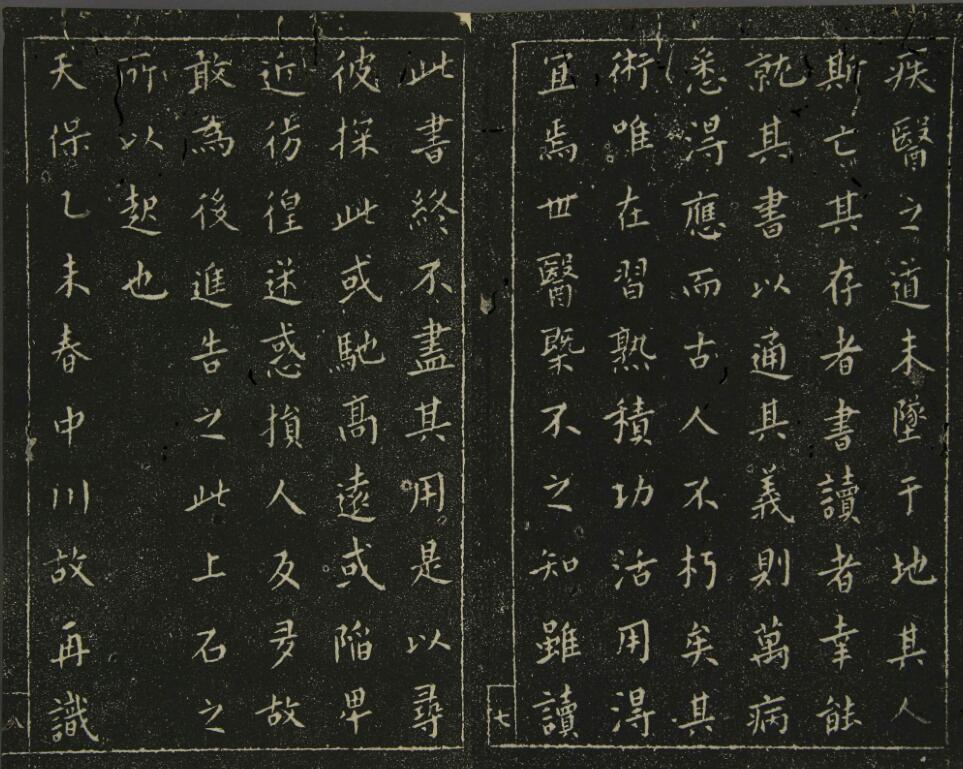 疾醫之道未墜于地其人
斯亡其存者書讀者幸能
就其書以通其義則萬病
悉得應而古人不朽矣其
術唯在習熟積功活用得
宜焉世醫槩不之知雖讀
七
此書終不盡其用是以尋
彼探此或馳高遠或陷卑
近彷徨迷惑損人及身故
敢為後進告之此上石之
所以起也
天保乙未春中川故再識
八